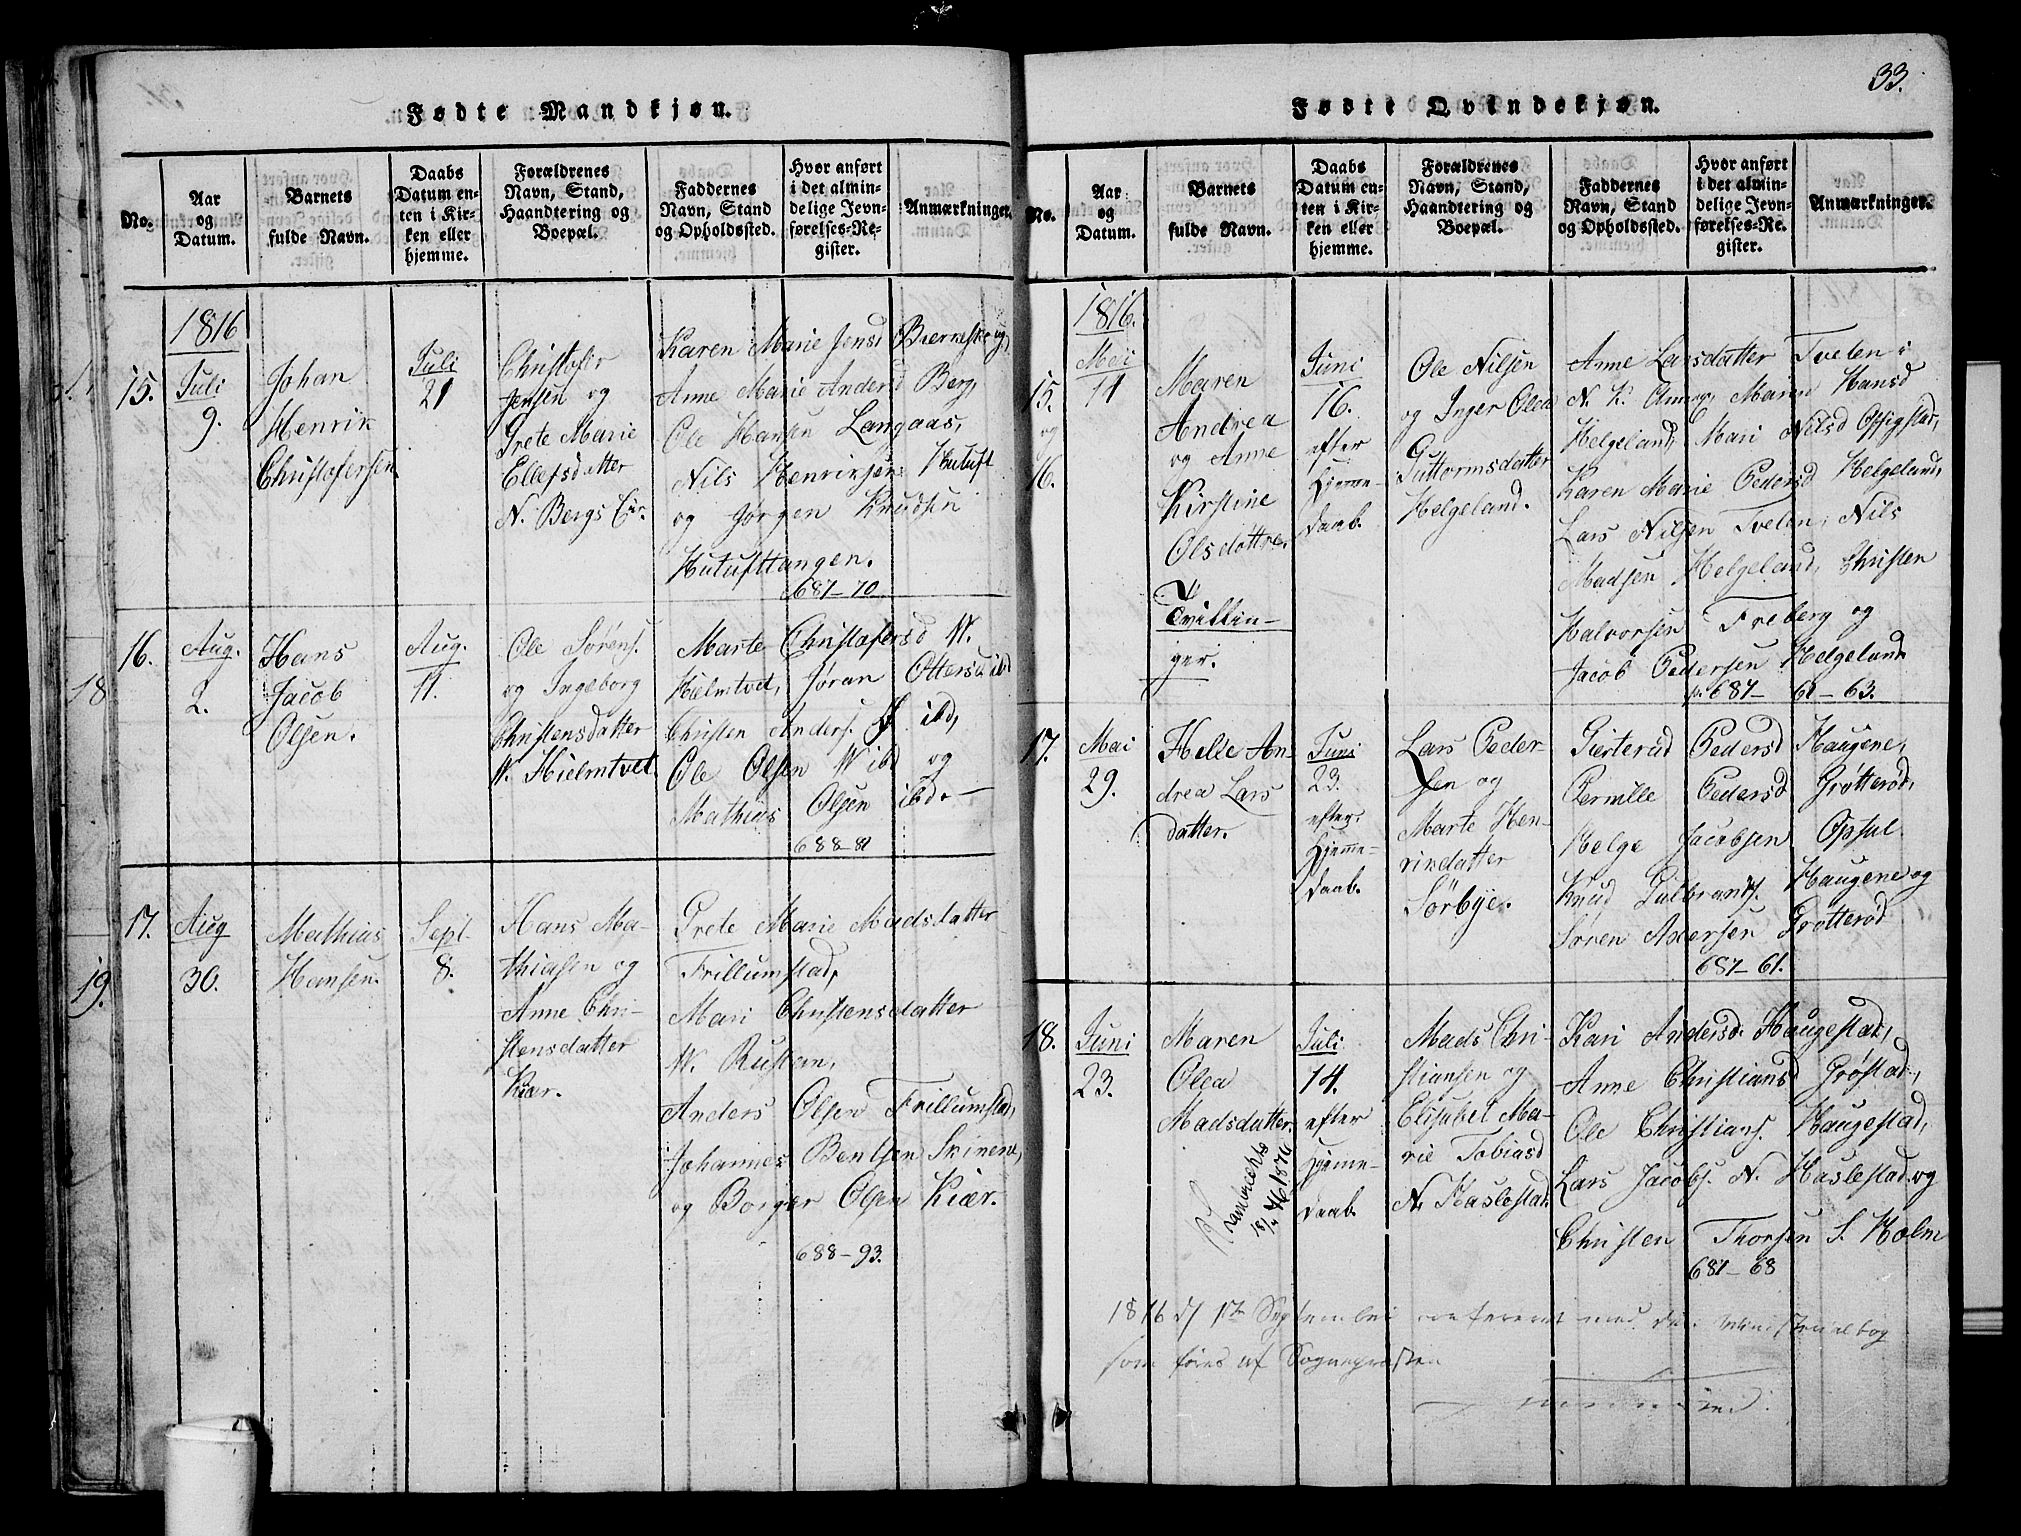 Fødte Mandkjøn.
No.
Aar
og
Datum.
Barnets
fulde Navn.
Daabs
Datum en-
ten i Kir-
ken eller
hjemme.
Forældrenes
Navn, Stand,
Haandtering og
Boepæl.
Faddernes
Navn, Stand
og Opholdssted.
Hvor anført
i det almin-
delige Jevn-
førelses-Re-
gister.
Anmærkninger.
15.
1816
Juli
9.
Johan
Henrik
Christofersen
Juli
21
Christofer
Jensen og
Grete Marie
Ellefsdatter
N. Bergs Eir.
Karen Marie Jensd Bierkeskog,
Anne Marie Andersd Berg,
Ole Hansen Langaas,
Nils Henriksen Hutuft
og Jørgen Knudsen
Hutufttangen.
687-70
16.
Aug.
2.
Hans
Jacob
Olsen.
Aug.
11.
Ole Sørens.
og Ingeborg
Christensdatter
W. Hielmtvet
Marte Christofersd W.
Hielmtvet, Jøran Ottersd ibd
Christen Anders. Ø. ibd,
Ole Olsen W ibd og
Mathias Olsen ibd. —
688-81
17.
Aug
30.
Mathias
Hansen.
Sept.
8.
Hans Ma-
thiasen og
Anne Chri-
stensdatter
Kiær.
Grete Marie Madsdatter
Frillumstad,
Mari Christensdatter
W. Rustan,
Anders Olsen Frillumstad,
Johannes Bentsen Skinene,
og Borger Olsen Kiær.
688-93.
18
19.
33.
Fødte Qvindekjøn.
No.
Aar
og
Datum.
Barnets
fulde Navn.
Daabs
Datum en-
ten i Kir-
ken eller
hjemme.
Forældrenes
Navn, Stand,
Haandtering og
Boepæl.
Faddernes
Navn, Stand
og Opholdssted.
Hvor anført
i det almin-
delige Jevn-
førelses-Re-
gister.
Anmærkninger.
15.
og
16.
1816.
Mai
11
Maren
Andrea
og Anne
Kirstine
Olsdøttre.
Tvillin-
ger.
Juni
16.
efter
Hjemme-
daab.
Ole Nilsen
og Inger Olea
Guttormsdatter
Helgeland.
Anne Larsdatter Tveten i
N. K. Maren Hansd
Helgeland, Mari Nilsd
Karen Marie Pedersd Helgeland,
Lars Nilsen Tveten, Nils
Madsen Helgeland, Christen
Halvorsen Freberg og
Jacob Pedersen Helgeland
p. 687- 62-63.
17.
Mai
29.
Helle An-
drea Lars
datter.
Juni
23.
efter
Hjemme-
daab.
Lars Peder-
sen og
Marte Hen-
rikdatter
Sörbye.
Gierterud Pedersd Haugene,
Pernille Pedersd Grøtterød,
Helge Jacobsen Opsal
Knud Gulbrands. Haugene og
Søren Andersen Grøtterød
687-61.
18.
Juni
23.
Maren
Olea
Madsdatter.
Juli
14.
efter
Hjemme-
daab.
Mads Chri-
stiansen og
Elisabet Ma-
rie Tobiasd
N. Haslestad.
Kari Andersd. Haugestad,
Anne Christiansd Grøstad,
Ole Christians. Haugestad,
Lars Jacobs. N. Haslestad og
Christen Thorsen S. Holm
687-68
1816 d/ September confereret med den ministerialbog
som føres af Sognepræsten